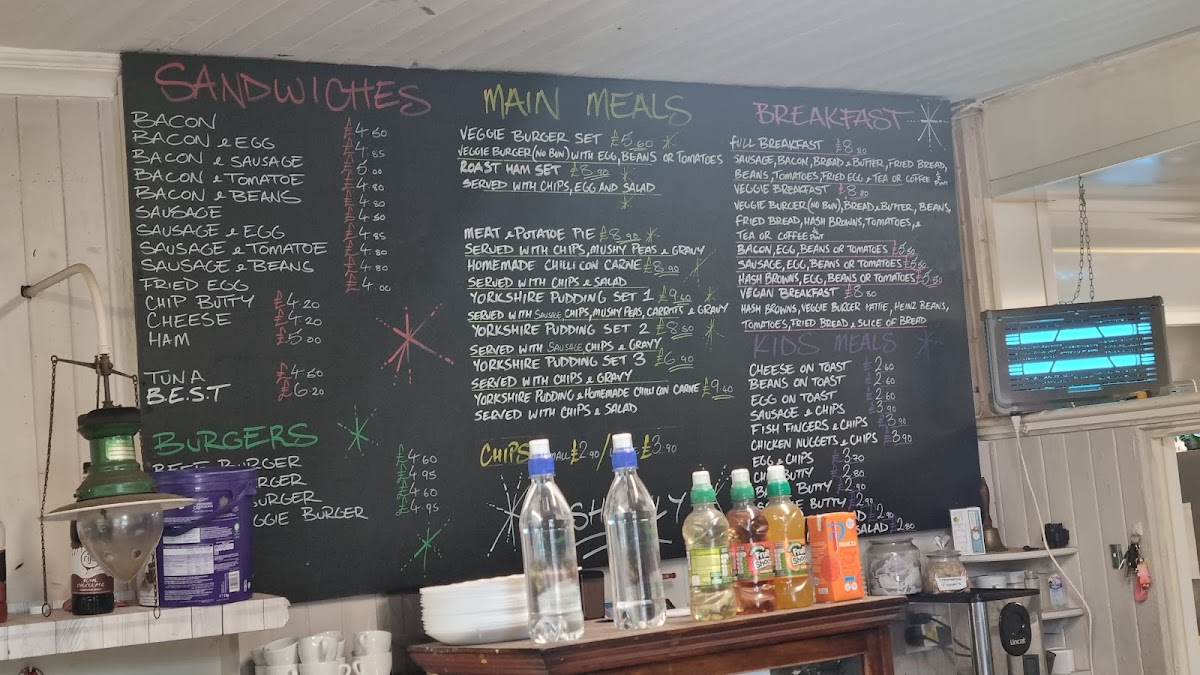 SANDWICHES
BACON £4.60
BACON & EGG £4.85
BACON & SAUSAGE £5.00
BACON & TOMATOE £4.80
BACON & BEANS £4.80
SAUSAGE £4.50
SAUSAGE & EGG £4.85
SAUSAGE & TOMATOE £4.80
SAUSAGE & BEANS £4.80
FRIED EGG £4.00
CHIP BUTTY £4.20
CHEESE £4.20
HAM £5.00
TUNA £4.60
B.E.S.T £6.20
BURGERS
BURGER £4.60
BURGER £4.95
BURGER £4.60
BURGER £4.95
MAIN MEALS
VEGGIE BURGER SET £5.60
VEGGIE BURGER (NO BUN) WITH EGG, BEANS OR TOMATOES
ROAST HAM SET £8.90
SERVED WITH CHIPS, EGG AND SALAD
MEAT & POTATOE PIE £8.90
SERVED WITH CHIPS, MUSHY PEAS & GRAVY
HOMEMADE CHILLI CON CARNE £8.90
SERVED WITH CHIPS & SALAD
YORKSHIRE PUDDING SET 1 £9.60
SERVED WITH SAUSAGE, CHIPS, MUSHY PEAS, CARROTS & GRAVY
YORKSHIRE PUDDING SET 2 £8.60
SERVED WITH SAUSAGE CHIPS & GRAVY
YORKSHIRE PUDDING SET 3 £6.90
SERVED WITH CHIPS & GRAVY
YORKSHIRE PUDDING & HOMEMADE CHILLI CON CARNE £9.60
SERVED WITH CHIPS & SALAD
CHIPS £2.90 / £3.90
BREAKFAST
FULL BREAKFAST £8.80
SAUSAGE, BACON, BREAD & BUTTER, FRIED BREAD,
BEANS, TOMATOES, FRIED EGG & TEA OR COFFEE
VEGGIE BREAKFAST £8.80
VEGGIE BURGER (NO BUN), BREAD & BUTTER, BEANS,
FRIED BREAD, HASH BROWNS, TOMATOES, &
TEA OR COFFEE
BACON, EGG, BEANS OR TOMATOES £5.50
SAUSAGE, EGG, BEANS OR TOMATOES £5.50
HASH BROWNS, EGG, BEANS OR TOMATOES £5.50
VEGAN BREAKFAST £8.80
HASH BROWNS, VEGGIE BURGER PATTIE, HEINZ BEANS,
TOMATOES, FRIED BREAD & SLICE OF BREAD
KIDS MEALS
CHEESE ON TOAST £2.60
BEANS ON TOAST £2.60
EGG ON TOAST £2.60
SAUSAGE & CHIPS £3.90
FISH FINGERS & CHIPS £3.90
CHICKEN NUGGETS & CHIPS £3.90
EGG & CHIPS £3.70
BUTTY £2.80
BUTTY £2.90
BUTTY £2.90
£2.90
SALAD £2.80
Fruit Shoot
Fruit Shoot
Lincat